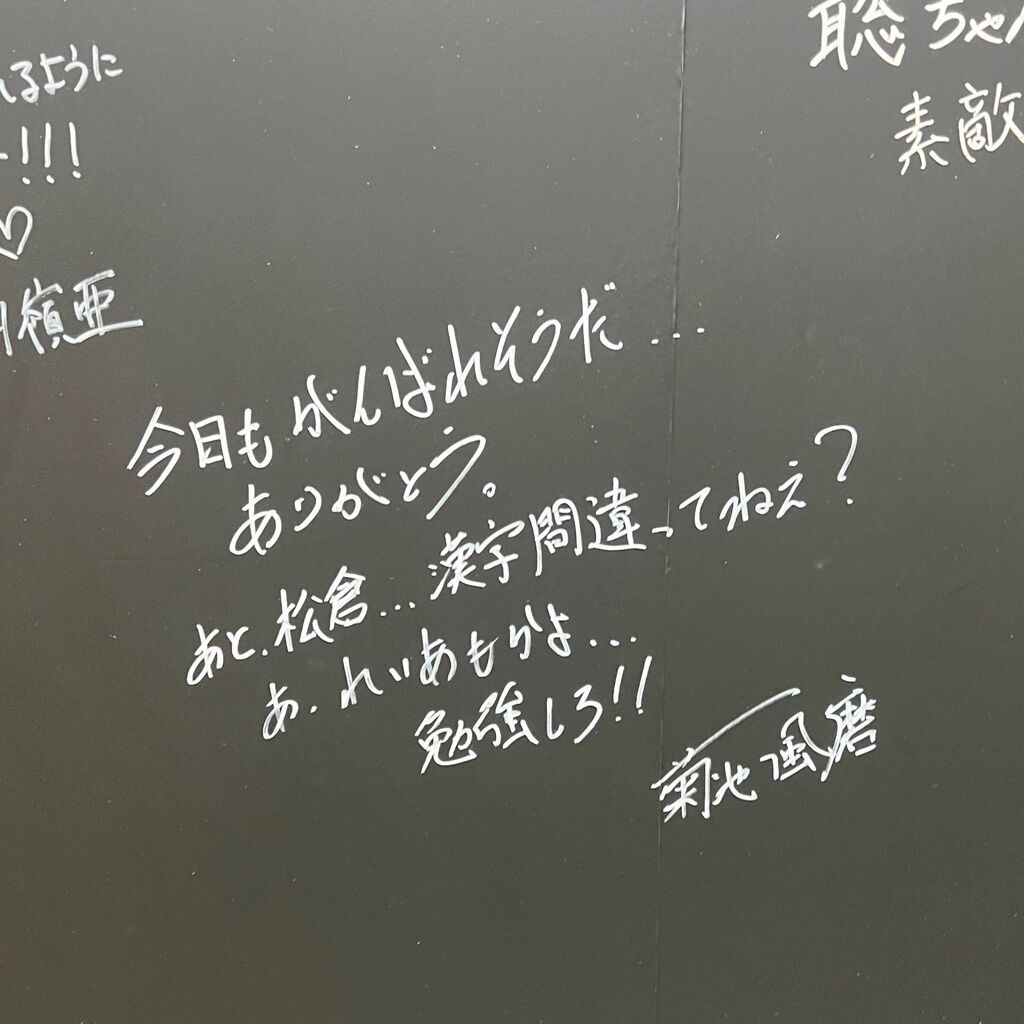 るように
!!!
♡
嶺亜
聡ちゃん
素敵
今日もがんばれそうだ...
ありがとう。
あと、松倉...漢字間違ってねえ?
あ、れいあもかよ...
勉強しろ!!
菊池風磨